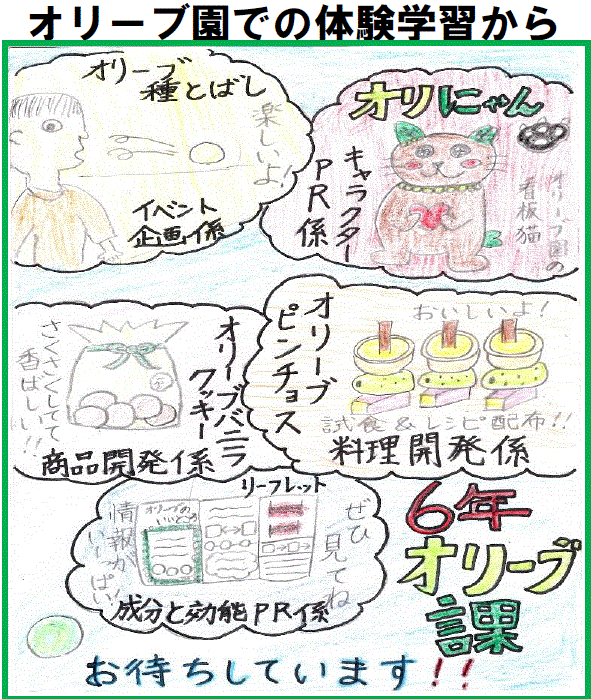 オリーブ園での体験学習から
オリーブ
種とばし
楽しいよ!
イベント
企画係
オリにゃん
キャラクター
PR係
オリーブ園の
看板猫
オリーブバニラ
クッキー
さくさくしてて
香ばしい!!
商品開発係
オリーブ
ピンチョス
おいしいよ!
試食&レシピ配布!!
料理開発係
リーフレット
オリーブの
いいところ
ぜひ
見てね
情報が
いっぱい!
成分と効能PR係
6年
オリーブ
課
お待ちしています!!